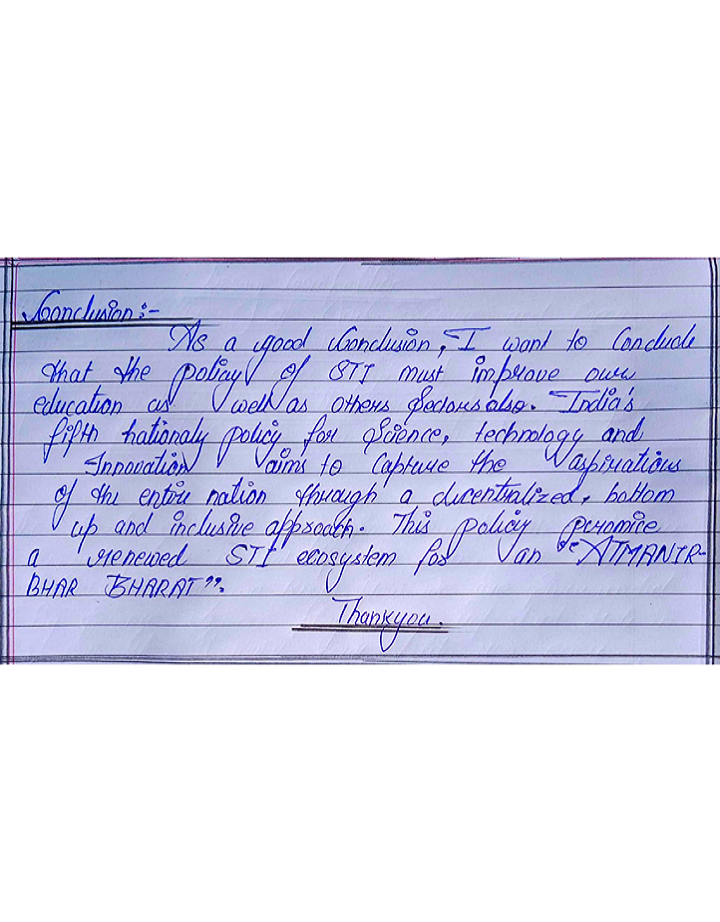 Conclusion :-
As a good Conclusion, I want to Conclude
that the policy of STI must improve our
education as well as others Sectors also. India's
fifth nationaly policy for Science, technology and
Innovation aims to Capture the aspirations
of the entire nation through a decentralized, bottom
up and inclusive approach. This policy promice
a renewed STI ecosystem for an "ATMANIR-
BHAR BHARAT".
Thankyou.